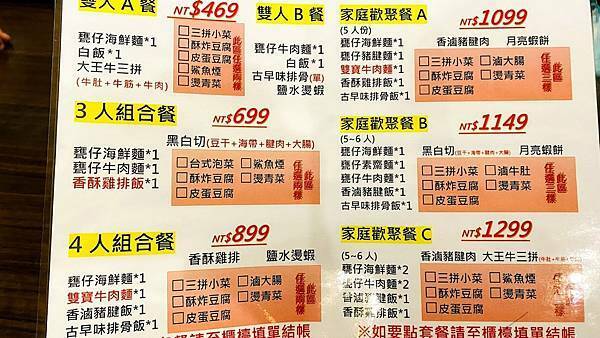 雙人 A 餐 NT$469
甕仔海鮮麵*1
白飯*1
大王牛三拼
(牛肚+牛筋+牛肉)
□三拼小菜
□酥炸豆腐
□皮蛋豆腐
□鯊魚煙
□燙青菜
此區任選兩樣
雙人 B 餐
甕仔牛肉麵*1
白飯*1
古早味排骨(單)
鹽水燙蝦
3 人組合餐 NT$699
甕仔海鮮麵*1
甕仔牛肉麵*1
香酥雞排飯*1
黑白切(豆干+海帶+腱肉+大腸)
□台式泡菜 □鯊魚煙
□酥炸豆腐 □燙青菜
□皮蛋豆腐
此區任選兩樣
4 人組合餐 NT$899
香酥雞排 鹽水燙蝦
甕仔海鮮麵*1
雙寶牛肉麵*1
香滷豬腱飯*1
古早味排骨飯*1
□三拼小菜 □滷大腸
□酥炸豆腐 □燙青菜
□皮蛋豆腐
此區任選兩樣
請至櫃檯填單結帳
家庭歡聚餐 A NT$1099
(5 人份)
香滷豬腱肉 月亮蝦餅
甕仔海鮮麵*1
甕仔豬腱麵*1
雙寶牛肉麵*1
香酥雞腿飯*1
古早味排骨飯*1
□三拼小菜 □滷大腸
□酥炸豆腐 □燙青菜
□皮蛋豆腐
此區任選三樣
家庭歡聚餐 B NT$1149
(5~6 人)
黑白切(豆干+海帶+腱肉+大腸) 月亮蝦餅
甕仔海鮮麵*1
甕仔素齋麵*1
甕仔牛肉麵*1
香滷豬腱飯*1
古早味排骨飯*1
□三拼小菜 □滷牛肚
□酥炸豆腐 □燙青菜
□皮蛋豆腐
此區任選三樣
家庭歡聚餐 C NT$1299
(5~6 人)
香滷豬腱肉 大王牛三拼
甕仔海鮮麵*2
甕仔牛肉麵*2
香滷豬腱飯*1
古早味排骨飯*1
□三拼小菜 □鯊魚煙
□酥炸豆腐 □燙青菜
□皮蛋豆腐
※如要點套餐請至櫃檯填單結帳